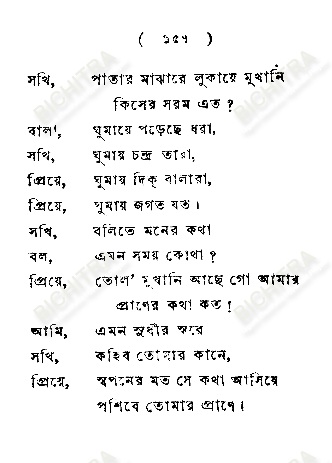 ( ১৫৭ )
সখি, পাতার মাঝারে লুকায়ে মুখানি
কিসের সরম এত ?
বালা, ঘুমায়ে পড়েছে ধরা,
সখি, ঘুমায় চন্দ্র তারা,
প্রিয়ে, ঘুমায় দিক্ বালারা,
প্রিয়ে, ঘুমায় জগত যত।
সখি, বলিতে মনের কথা
বল, এমন সময় কোথা ?
প্রিয়ে, তোল' মুখানি আছে গো আমার
প্রাণের কথা কত !
আমি, এমন সুধীর স্বরে
সখি, কহিব তোমার কানে,
প্রিয়ে, স্বপনের মত সে কথা আসিয়ে
পশিবে তোমার প্রাণে।